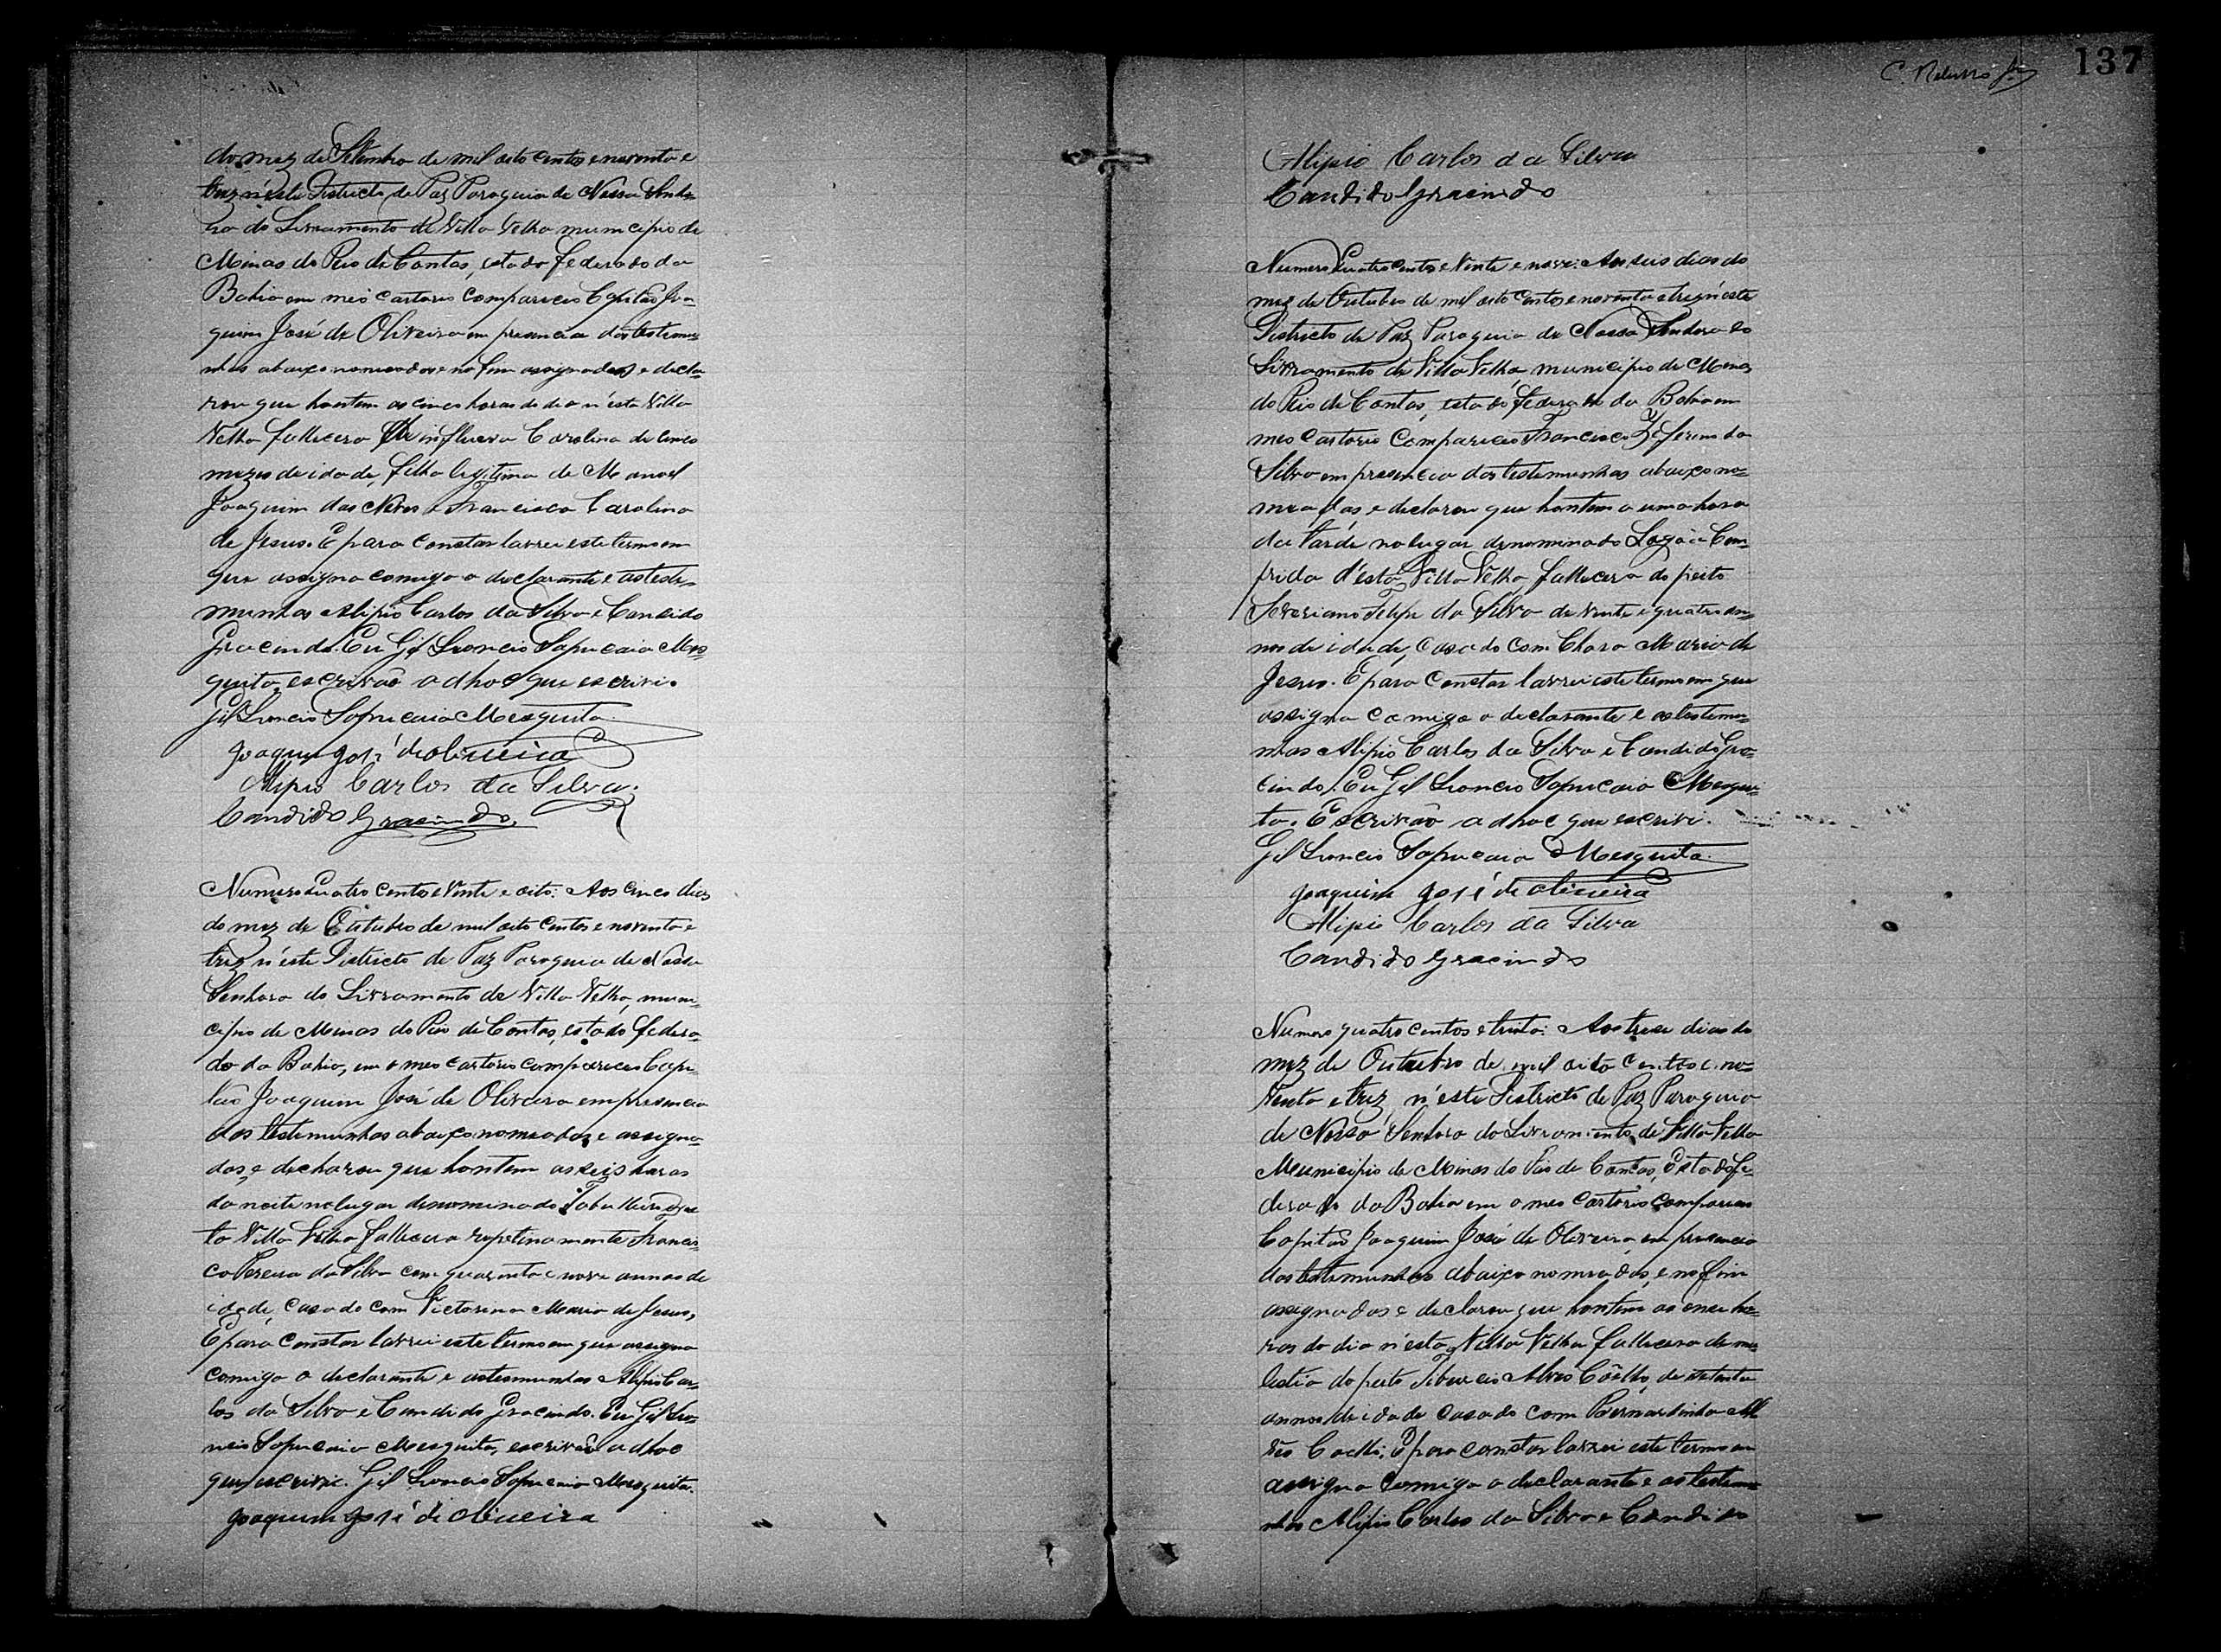 do mez de Setembro de mil oito centos e noventa e
trez n'este Districto de Paz Paroquia de Nossa Senho-
ra do Livramento de Villa Velha municipio de
Minas do Rio de Contas, estado federado da
Bahia em meo cartorio compareceo Capitão Joa-
quim José de Oliveira em presencia das testemu-
nhas abaixo nomeadas e no fim assignadas e decla-
rou que hontem as cinco horas do dia n'esta Villa
Velha fallecera de influera Carolina de cinco
mezes de idade, filha legitima de Manoel
Joaquim das Neves e Francisca Carolina
de Jesus. E para constar lavrei este termo em
que assigna comigo o declarante e as teste-
munhas Alipio Carlos da Silva e Candido
Gracindo. Eu Gil Leoncio Sapucaia Mes-
quita, escrivão adhoc que escrivi.
Gil Leoncio Sapucaia Mesquita.
Joaquim José de oliveira
Alipio Carlos da Silva.
Candido Gracindo.
Numero Quatro centos e Vinte e oito. Aos cinco dias
do mez de Outubro de mil oito centos e noventa e
trez n'este Districto de Paz Paroquia de Nossa
Senhora do Livramento de Villa Velha, muni-
cipio de Minas do Rio de Contas, estado federa-
do da Bahia, em o meo cartorio compareceo Capi-
tão Joaquim José de Oliveira em presencia
das testemunhas abaixo nomeadas e assigna-
das, e declarou que hontem as seis horas
da noite no lugar denominado Tabulleiro des-
ta Villa Velha fallecera repetinamente Francis-
co Pereira da Silva com quarenta e nove annos de
idade, casado com Victorina Maria de Jesus,
E para constar lavrei este termo em que assigna
comigo o declarante e as temunhas Alipio Car-
los da Silva e Candido Gracindo. Eu Gil Leo-
ncio Sapucaia Mesquita, escrivão adhoc
que escrivi. Gil Leoncio Sapucaia Mesquita.
Joaquim José de oliveira
137
Alipio Carlos da Silva
Candido Gracindo
Numero Quatro centos e Vinte e nove. Aos seis dias do
mez de Outubro de mil oito centos e noventa e trez n'este
Districto de Paz Paroquia de Nossa Senhora do
Livramento de Villa Velha municipio de Minas
do Rio de Contas, estado federado da Bahia em
meo cartorio compareceo Francisco Zeferino da
Silva em presencia das testemunhas abaixo no-
meadas e declarou que hontem a uma hora
da tarde no lugar denominado Lagôa Com-
prida d'esta Villa Velha fallecera do peito
Severiano Felipe da Silva de vinte e quatro an-
nos de idade, casado com Clara Maria de
Jesus. E para constar lavrei este termo em que
assigna comigo o declarante e as testemu-
nhas Alipio Carlos da Silva e Candido Gra-
cindo. Eu Gil Leoncio Sapucaia Mesqui-
ta. Escrivão adhoc que escrivi.
Gil Leoncio Sapucaia Mesquita.
Joaquim José de oliveira
Alipio Carlos da Silva
Candido Gracindo
Numero quatro centos e trinta. Aos treze dias do
mez de Outubro de mil oito centos e no-
venta e trez, n'este Districto de Paz Paroquia
de Nossa Senhora do Livramento de Villa Velha
Municipio de Minas do Rio de Contas, Estado fe-
derado da Bahia em o meo cartorio compareceo
Capitão Joaquim José de Oliveira, em presencia
das testemunhas abaixo nomeadas, e no fim
assignadas e declarou que hontem as onze ho-
ras do dia n'esta Villa Velha fallecera de mo-
lestia do peito Tiburcio Alves Coêlho, de setenta
annos de idade casado com Bernardinha Al-
ves Coelho; E para constar lavrei este termo em
assigna comigo o declarante e as testemu-
nhas Alipio Carlos da Silva e Candido